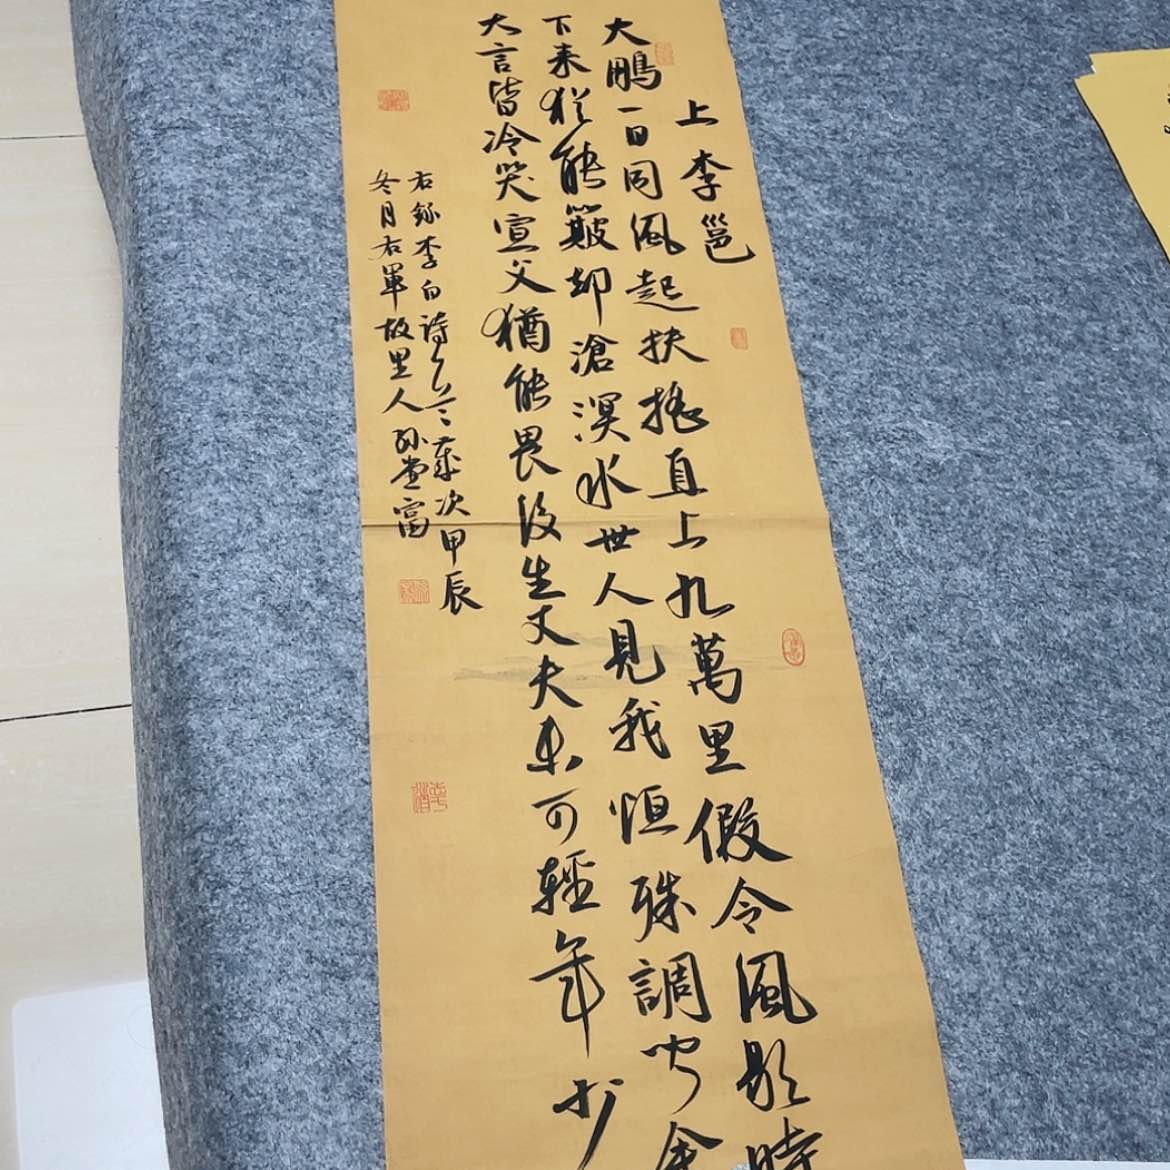 上李邕
大鵬一日同風起扶搖直上九萬里假令風歇時
下来猶能簸却滄溟水世人見我恒殊調聞余
大言皆冷笑宣父猶能畏後生丈夫未可輕年少
右錄李白詩一首歲次甲辰
冬月右軍故里人孙富